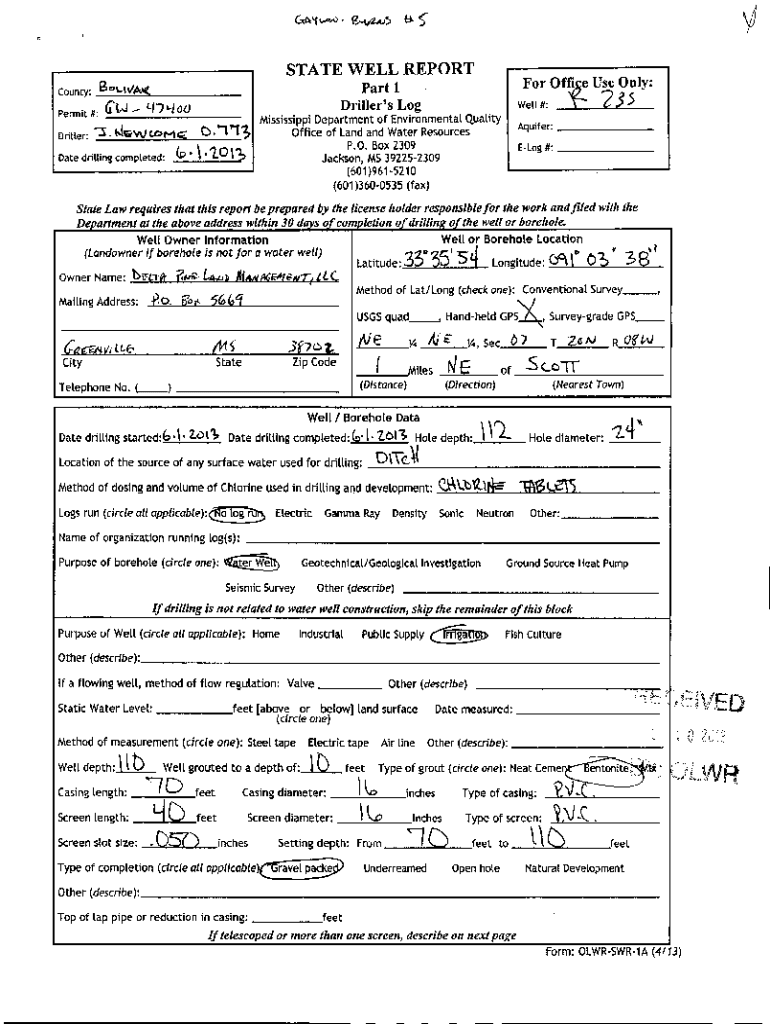 GAYLON BURNS #5
STATE WELL REPORT
Part 1
Driller's Log
Mississippi Department of Environmental Quality
Office of Land and Water Resources
P.O. Box 2309
Jackson, MS 39225-2309
(601)961-5210
(601)360-0535 (fax)
County: BOLIVAR
Permit #: GW-47400
Driller: J. NEWCOME 0.773
Date drilling completed: 6.1.2013
For Office Use Only:
Well #: R 235
Aquifer:
E-Log #:
State Law requires that this report be prepared by the license holder responsible for the work and filed with the
Department at the above address within 30 days of completion of drilling of the well or borehole.
Well Owner Information
(Landowner if borehole is not for a water well)
Owner Name: DELTA PINE LAND MANAGEMENT, LLC
Mailing Address: P.O. Box 5669
GREENVILLE MS 38702
City State Zip Code
Telephone No. ( )
Well or Borehole Location
Latitude: 33°35'54 Longitude: 091° 03' 38"
Method of Lat/Long (check one): Conventional Survey ,
USGS quad , Hand-held GPS X , Survey-grade GPS
NE ¼ NE ¼, Sec 07 T 20N R 08W
1 Miles NE of SCOTT
(Distance) (Direction) (Nearest Town)
Well / Borehole Data
Date drilling started: 6.1.2013 Date drilling completed: 6.1.2013 Hole depth: 112 Hole diameter: 24"
Location of the source of any surface water used for drilling: DITCH
Method of dosing and volume of Chlorine used in drilling and development: CHLORINE TABLETS
Logs run (circle all applicable): No log run Electric Gamma Ray Density Sonic Neutron Other:
Name of organization running log(s):
Purpose of borehole (circle one): Water Well Geotechnical/Geological Investigation Ground Source Heat Pump
Seismic Survey Other (describe)
If drilling is not related to water well construction, skip the remainder of this block
Purpose of Well (circle all applicable): Home Industrial Public Supply Irrigation Fish Culture
Other (describe):
If a flowing well, method of flow regulation: Valve Other (describe)
Static Water Level: feet [above or below] land surface Date measured:
(circle one)
Method of measurement (circle one): Steel tape Electric tape Air line Other (describe):
Well depth: 110 Well grouted to a depth of: 10 feet Type of grout (circle one): Neat Cement Bentonite Mix
Casing length: 70 feet Casing diameter: 16 inches Type of casing: P.V.C.
Screen length: 40 feet Screen diameter: 16 inches Type of screen: P.V.C.
Screen slot size: .050 inches Setting depth: From 70 feet to 110 feet
Type of completion (circle all applicable): Gravel packed Underreamed Open hole Natural Development
Other (describe):
Top of lap pipe or reduction in casing: feet
If telescoped or more than one screen, describe on next page
Form: OLWR-SWR-1A (4/13)
RECEIVED
OLWR